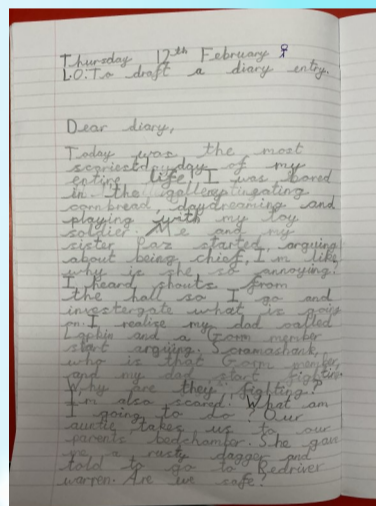 Thursday 12th February
L.O.To draft a diary entry.
Dear diary,
Today was the most
scariest day of my
entire life. I was bored
in the gallery eating
cornbread, daydreaming and
playing with my toy
soldier. Me and my
sister Raz started arguing
about being chief, I'm like,
why is she so annoying!
I heard shouts from
the hall so I go and
investergate what is going
on. I realize my dad called
Lorbin and a Gorm member
start arguing. Scramashank,
who is that Gorm member,
and my dad start fighting.
Why are they fighting?
I'm also scared. What am
I going to do? Our
auntie takes us to our
parents bedchamber. She gave
us a rusty dagger and
told to go to Redriver
warren. Are we safe?